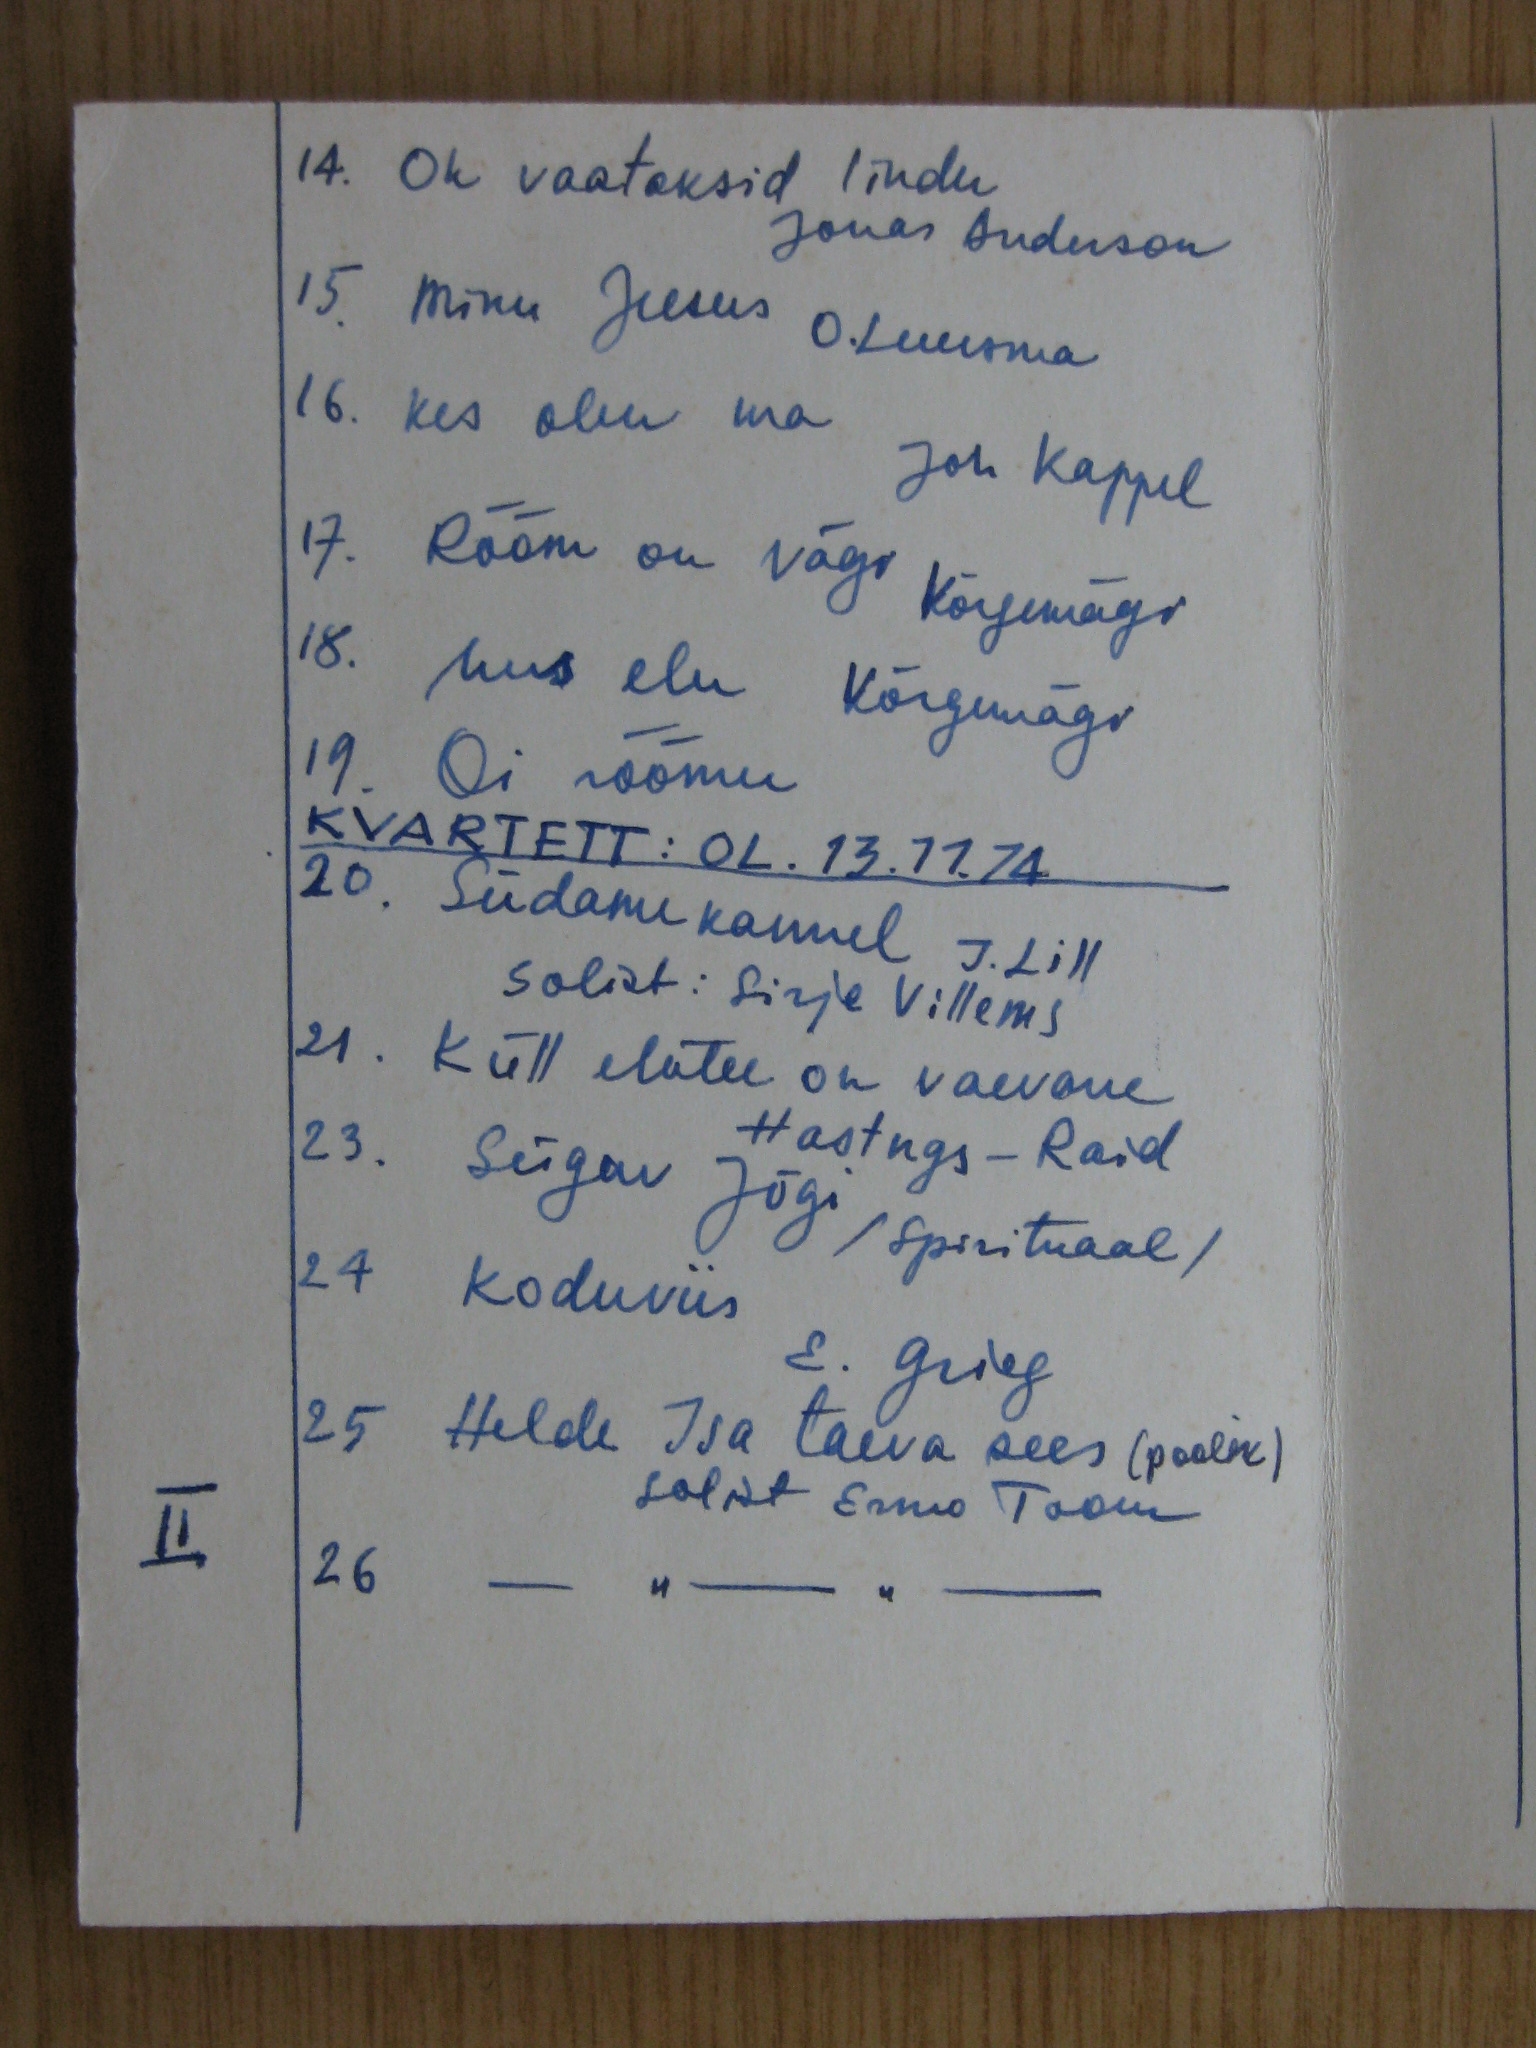 14. Oh vaataksid lindu
Jonas Anderson
15. Minu Jeesus O. Luuisma
16. Kes olen ma
Joh Kappel
17. Rõõm on vägi Kõrgemägi
18. Uus elu Kõrgemägi
19. Oi rõõmu
KVARTETT: OL. 13.11.74
20. Südame kannel J. Lill
Solist: Sirje Villems
21. Küll elutee on vaevane
Hastngs – Raid
23. Sügav Jõgi
/Spirituaal/
24 Koduviis
E. Grieg
25 Helde Isa taeva sees (poolik)
solist Ermo Toom
II
26 — " — " —